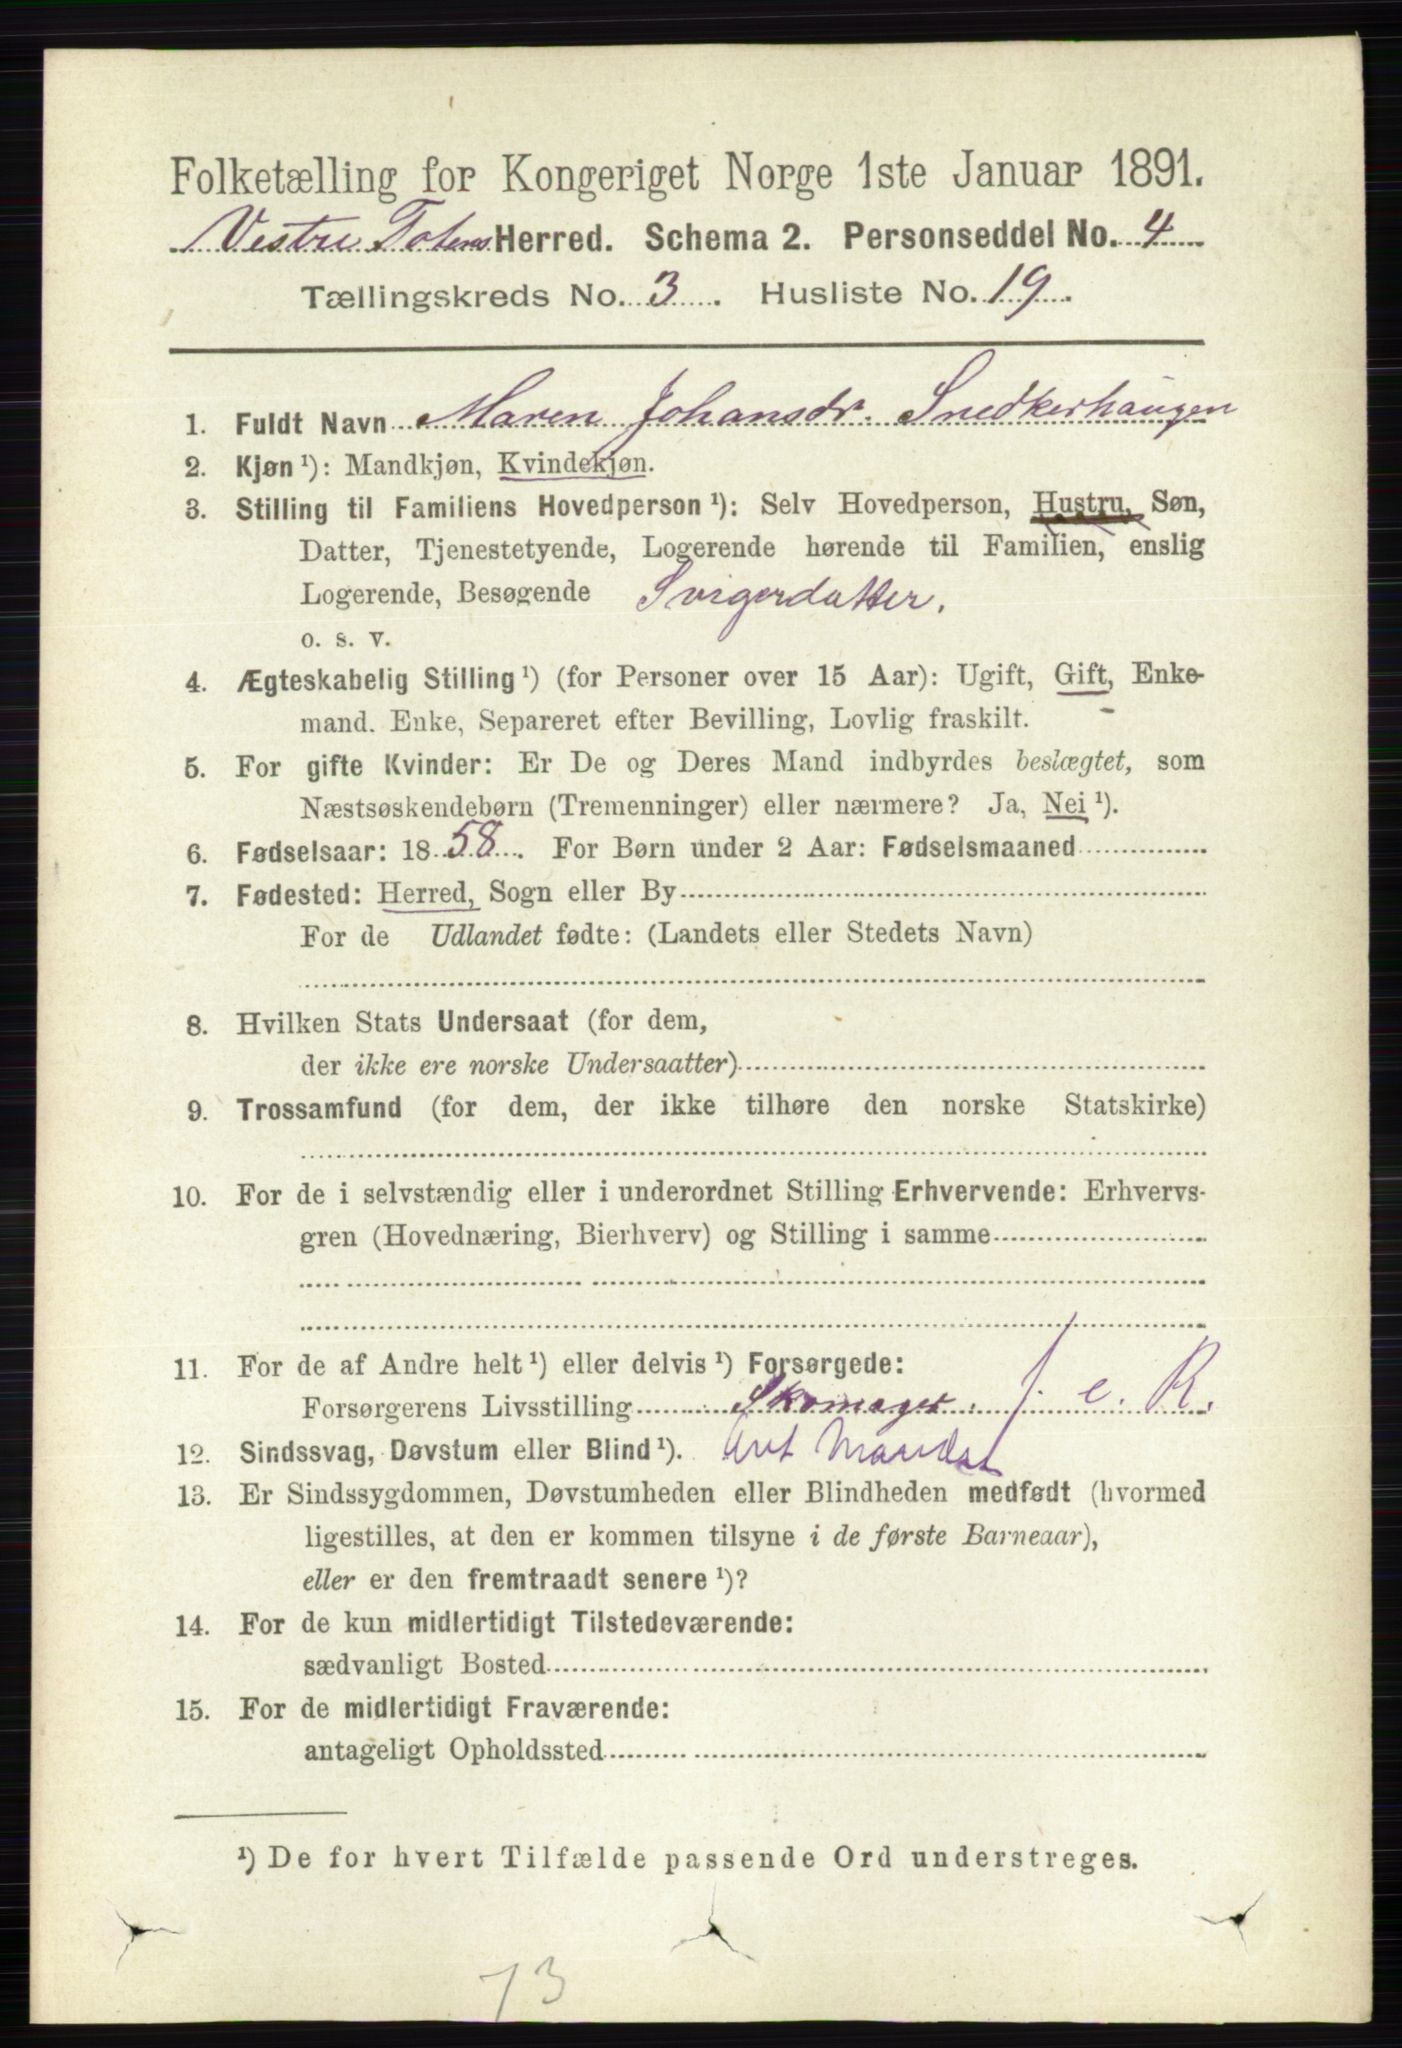 Folketælling for Kongeriget Norge 1ste Januar 1891.
Vestre Totens Herred. Schema 2. Personseddel No. 4
Tællingskreds No. 3. Husliste No. 19.
1. Fuldt Navn Maren Johansdr. Snedkerhaugen
2. Kjøn ¹): Mandkjøn, Kvindekjøn.
3. Stilling til Familiens Hovedperson ¹): Selv Hovedperson, Hustru, Søn,
Datter, Tjenestetyende, Logerende hørende til Familien, enslig
Logerende, Besøgende Svigerdatter.
o. s. v.
4. Ægteskabelig Stilling ¹) (for Personer over 15 Aar): Ugift, Gift, Enke-
mand. Enke, Separeret efter Bevilling, Lovlig fraskilt.
5. For gifte Kvinder: Er De og Deres Mand indbyrdes beslægtet, som
Næstsøskendebørn (Tremenninger) eller nærmere? Ja, Nei ¹).
6. Fødselsaar: 1858. For Børn under 2 Aar: Fødselsmaaned
7. Fødested: Herred, Sogn eller By
For de Udlandet fødte: (Landets eller Stedets Navn)
8. Hvilken Stats Undersaat (for dem,
der ikke ere norske Undersaatter)
9. Trossamfund (for dem, der ikke tilhøre den norske Statskirke)
10. For de i selvstændig eller i underordnet Stilling Erhvervende: Erhvervs-
gren (Hovednæring, Bierhverv) og Stilling i samme
11. For de af Andre helt ¹) eller delvis ¹) Forsørgede:
Forsørgerens Livsstilling Skomager. f. e. R.
12. Sindssvag, Døvstum eller Blind ¹).
13. Er Sindssygdommen, Døvstumheden eller Blindheden medfødt (hvormed
ligestilles, at den er kommen tilsyne i de første Barneaar),
eller er den fremtraadt senere ¹)?
14. For de kun midlertidigt Tilstedeværende:
sædvanligt Bosted
15. For de midlertidigt Fraværende:
antageligt Opholdssted
¹) De for hvert Tilfælde passende Ord understreges.
73